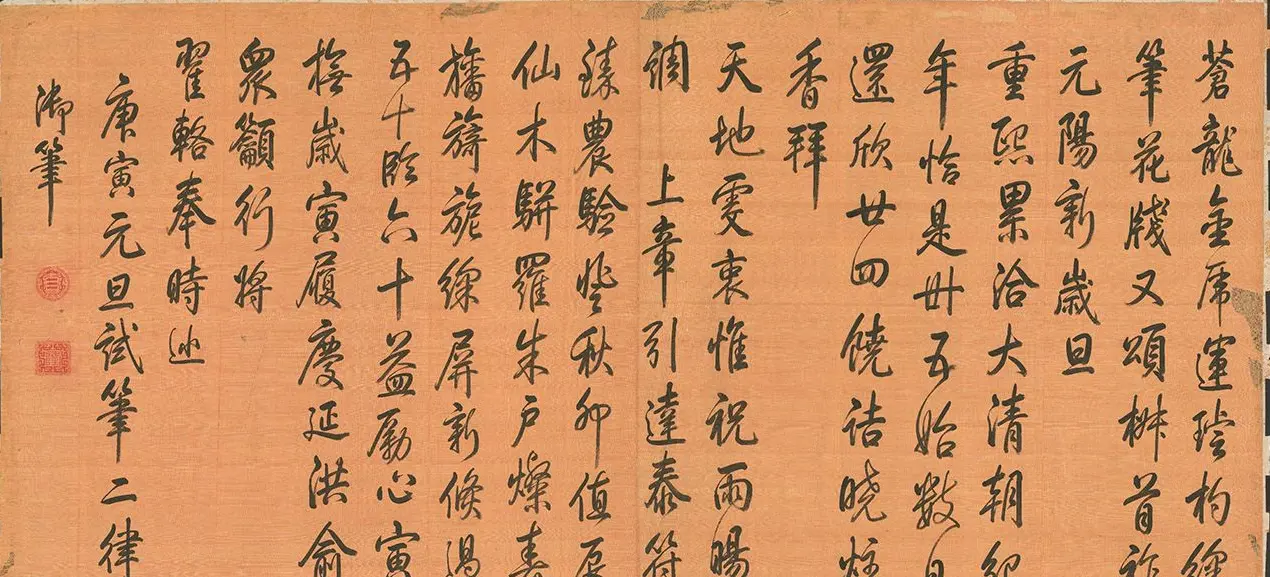 蒼龍金虎運璿杓綵
筆花牋又頌椒首祚
元陽新歲旦
重熙累洽大清朝紀
年恰是卅五始數日
還欣廿四饒詰曉炷
香拜
天地虔衷惟祝雨暘
調 上章引達泰符
臻農驗登秋卯值辰
仙木駢羅朱户燦春
旛旖旎綵屏新倏過
五十臨六十益勵心寅
撫歲寅履慶延洪俞
衆籲行將
翟輅奉時巡
庚寅元旦試筆二律
御筆